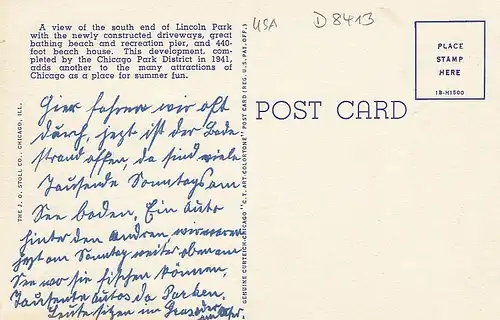 A view of the south end of Lincoln Park
with the newly constructed driveways, great
bathing beach and recreation pier, and 440-
foot beach house. This development, com-
pleted by the Chicago Park District in 1941,
adds another to the many attractions of
Chicago as a place for summer fun.
USA
D 8413
PLACE
STAMP
HERE
1B-H1500
POST CARD
THE J. O. STOLL CO., CHICAGO, ILL.
GENUINE CURTEICH-CHICAGO "C.T. ART-COLORTONE" POST CARD (REG. U.S. PAT. OFF.)
Hier fahren wir oft
durch, jezt ist der Bade
strand offen, da sind viele
Tausende Sonntags am
See baden. Ein Auto
hinter den andren wir waren
jezt am Sonntag weiter oben am
See wo sie fischen können,
Tausente Autos da Parken.
Leute sitzen im Gras oder
am Ufer.